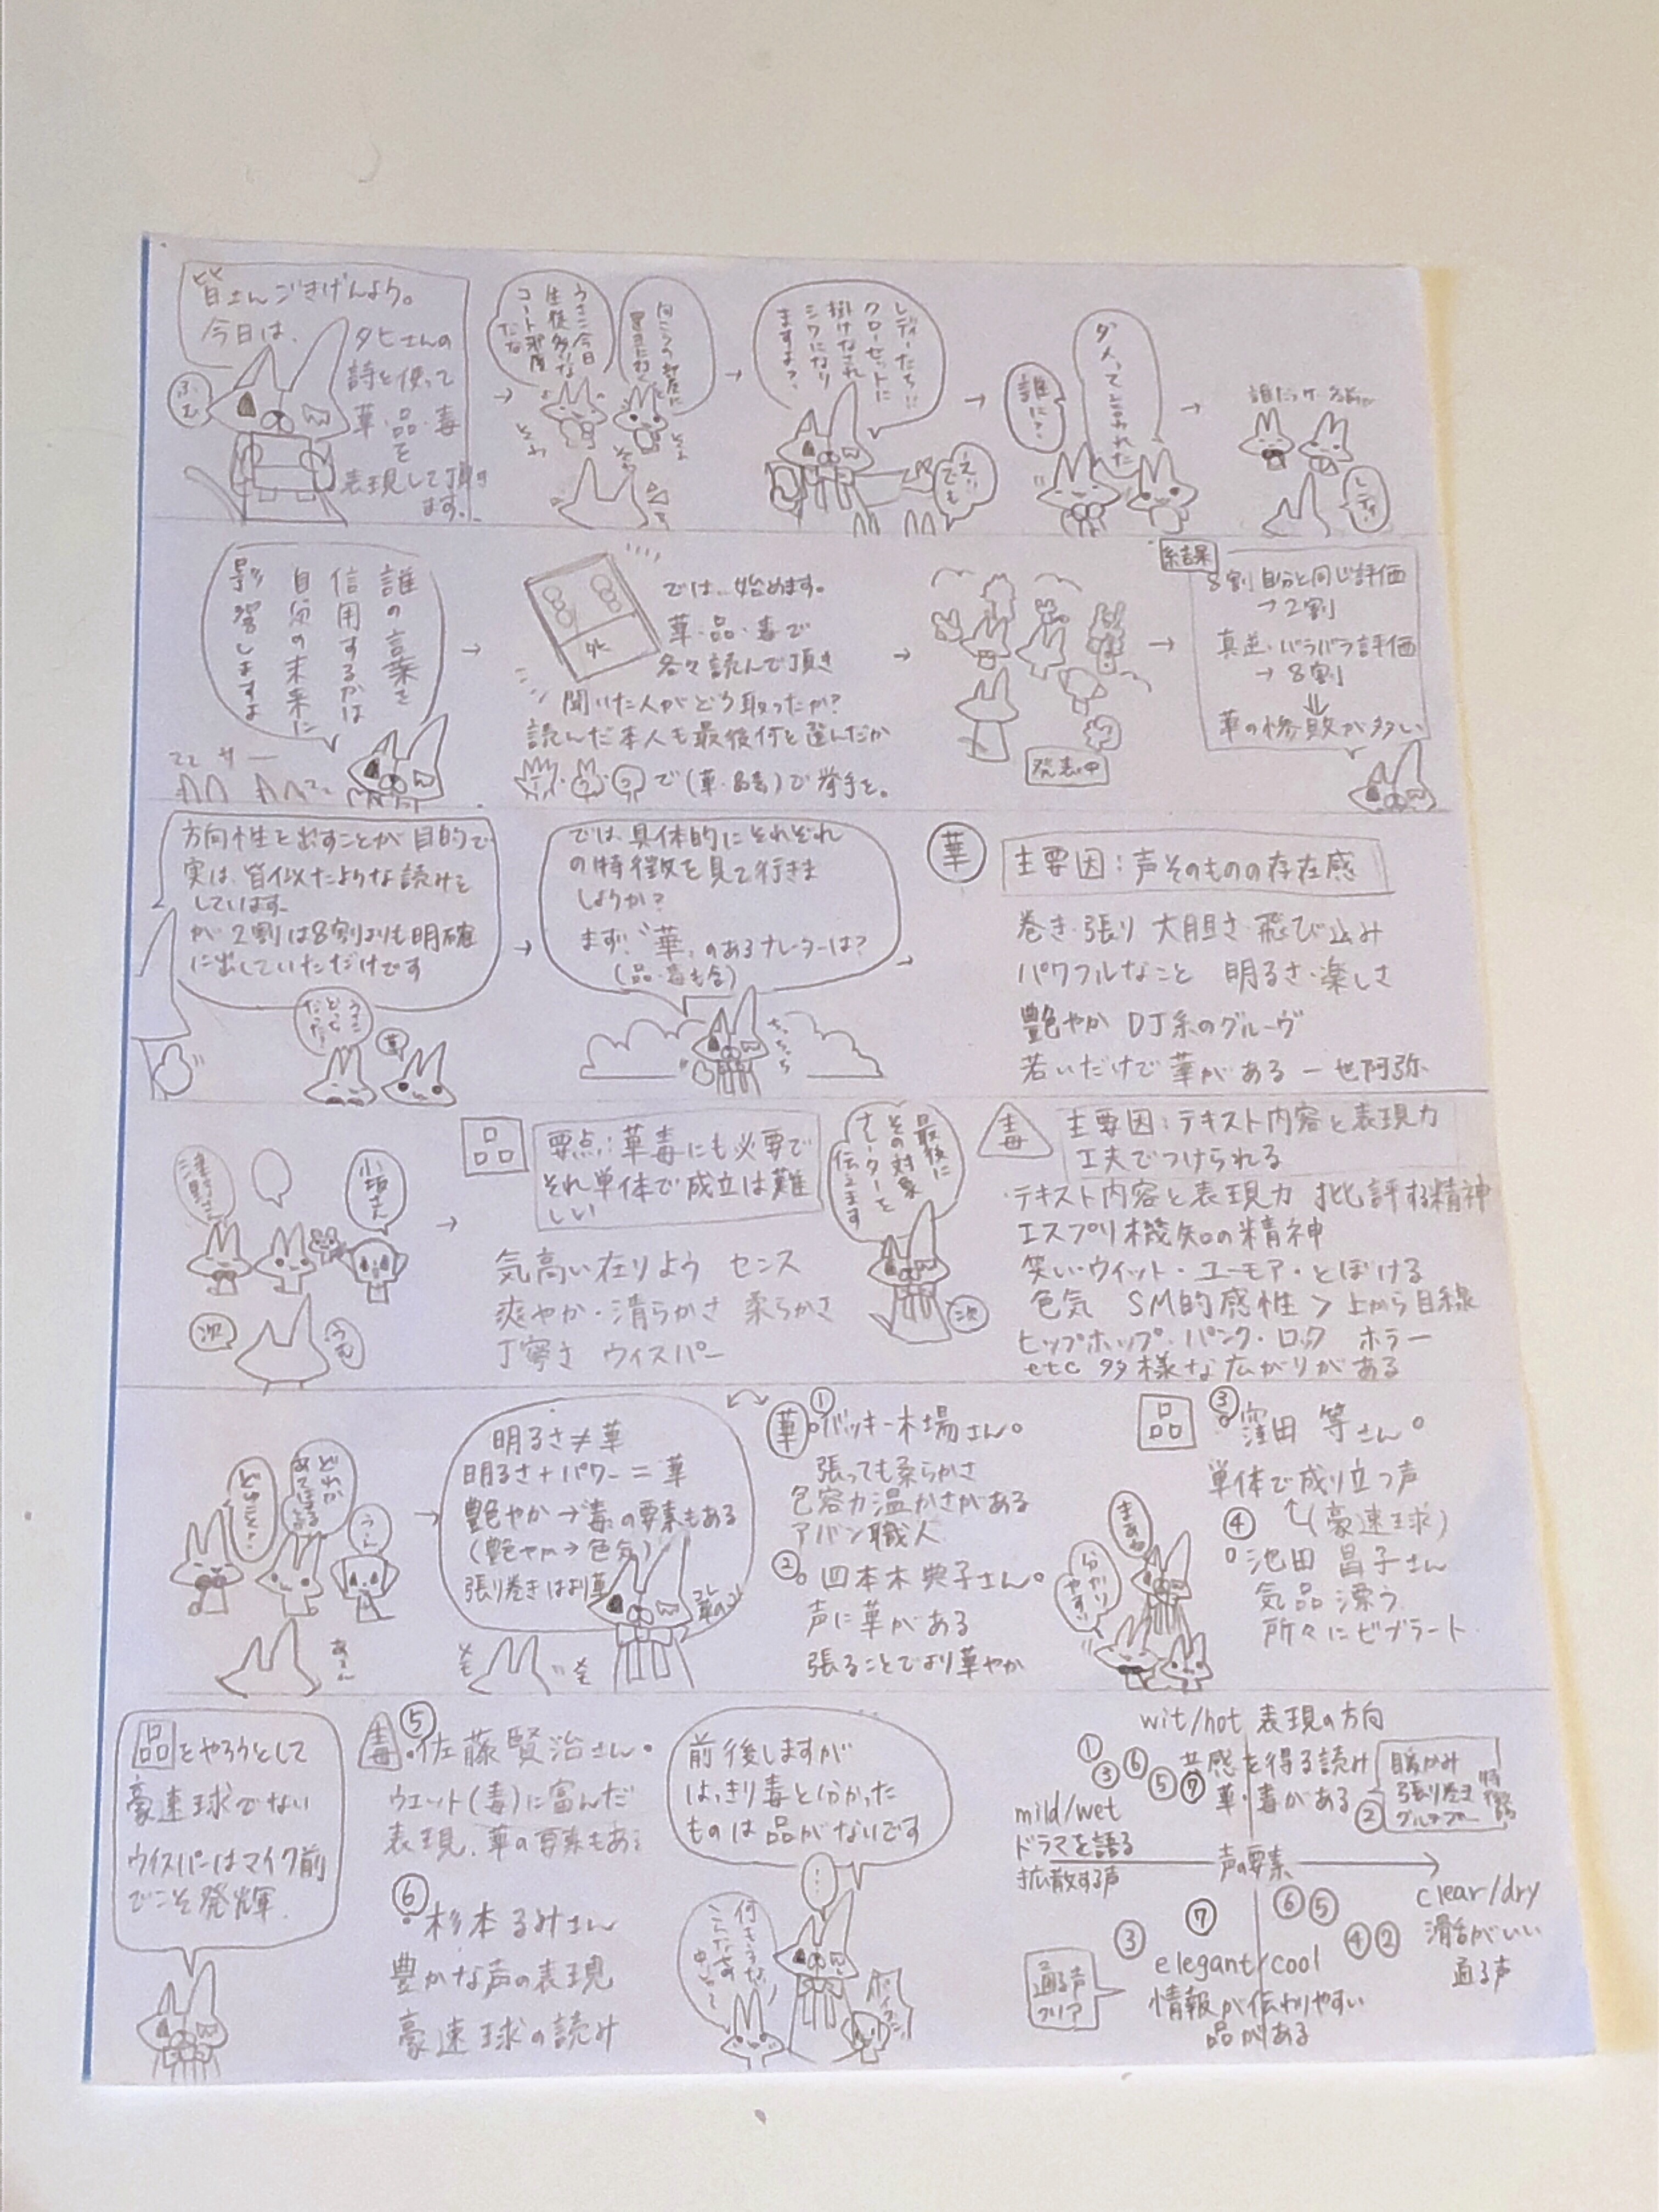 皆さんごきげんよう。
今日は、
タヒさんの
詩を使って
華・品・毒
を
表現して頂き
ます。
ふむ
うさこ今日
生徒多いな
コート邪魔
だな
向こうの部屋に
レディーたち!!
クローゼットに
掛けなされ
シワになり
ますよっ
でも
誰に?
ダメって言われた
誰だっけ 名前
レディ
誰の言葉を
信用するかは
自分の未来に
影響しますよ
サー
では、始めます。
華・品・毒で
各々読んで頂き
聞いた人がどう取ったか?
読んだ本人も最後何を選んだか
で(華・品・毒)で挙手を。
発表中
結果
8割 自分と同じ評価
→2割
真逆・バラバラ評価
→8割
⇓
華の惨敗が多い
方向性を出すことが目的で
実は、皆似たような読みを
しています。
が 2割は8割よりも明確
に出していただけです
うさこ
どっち
だった?
華
では具体的にそれぞれ
の特徴を見て行きま
しょうか?
まず"華"のあるナレーターは?
(品・毒も含)
ちっちっち
華
主要因:声そのものの存在感
巻き・張り 大胆さ・飛び込み
パワフルなこと 明るさ・楽しさ
艶やか DJ系のグルーヴ
若いだけで華がある ー世阿弥
小坂さん
次
うむ
品
要点:華毒にも必要で
それ単体で成立は難
しい
気高い在りよう センス
爽やか・清らかさ 柔らかさ
丁寧さ ウィスパー
最後に
その対象
ナレーターを
伝えます
次
毒
主要因:テキスト内容と表現力
工夫でつけられる
・テキスト内容と表現力 批評する精神
エスプリ機知の精神
笑い・ウィット・ユーモア・とぼける
色気 SM的感性>上から目線
ヒップホップ・パンク・ロック ホラー
etc 多様な広がりがある
どれか
うーん
明るさ≠華
明るさ+パワー=華
艶やか→毒の要素もある
(艶やか→色気)
張り巻きはより華
華
①バッキー木場さん。
張っても柔らかさ
包容力温かさがある
アバン職人
②四本木典子さん。
声に華がある
張ることでより華やか
まあね
分かり
やすい
品
③窪田 等さん。
単体で成り立つ声
↑(豪速球)
④池田 昌子さん
気品漂う
所々にビブラート
品をやろうとして
豪速球でない
ウィスパーはマイク前
でこそ発揮
毒
⑤佐藤賢治さん。
ウエット(毒)に富んだ
表現、華の要素もある
⑥杉本るみさん
豊かな声の表現
豪速球の読み
前後しますが
はっきり毒と分かった
ものは品がないです
…
wit/hot 表現の方向
① ③ ⑥ ⑤ ⑦ 共感を得る読み
華・毒がある ②
暖かみ
張り巻き
特徴
mild/wet
ドラマを語る
拡散する声
声の要素
clear/dry
滑舌がいい
通る声
③ ⑦ ⑥ ⑤ ④ ②
elegant/cool
情報が伝わりやすい
品がある
通る声
クリア